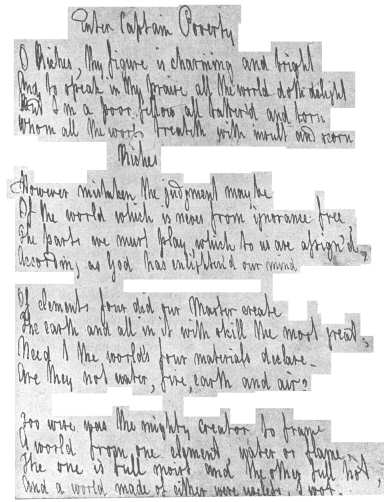 Enter Captain Poverty
O Riches, thy figure is charming and bright
And to speak in thy praise all the world doth delight
But I'm a poor fellow all tatter'd and torn
Whom all the world treateth with insult and scorn
Riches
However mistaken the judgment may be
Of the world which is never from ignorance free
The parts we must play, which to us are assign'd,
According as God has enlighten'd our mind
Of elements four did our Master create
The earth and all in it with skill the most great,
Need I the world's four materials declare
Are they not water, fire, earth and air?
Too wise was the mighty creator to frame
A world from one element, water or flame
The one is full moist and the other full hot
And a world made of either were useless, I wot